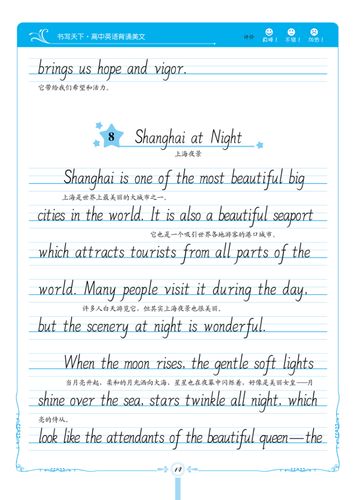 书写天下·高中英语背诵美文
评价:
brings us hope and vigor.
它带给我们希望和活力。
8 Shanghai at Night
上海夜景
Shanghai is one of the most beautiful big
上海是世界上最美丽的大城市之一。
cities in the world. It is also a beautiful seaport
它也是一个吸引世界各地游客的港口城市。
which attracts tourists from all parts of the
world. Many people visit it during the day,
许多人白天游览它，但其实上海夜景也很美丽。
but the scenery at night is wonderful.
When the moon rises, the gentle soft lights
当月亮升起，柔和的月光洒向大海，星星也在夜幕中闪烁着，好像是美丽女皇——月
shine over the sea, stars twinkle all night, which
亮的侍从。
look like the attendants of the beautiful queen—the